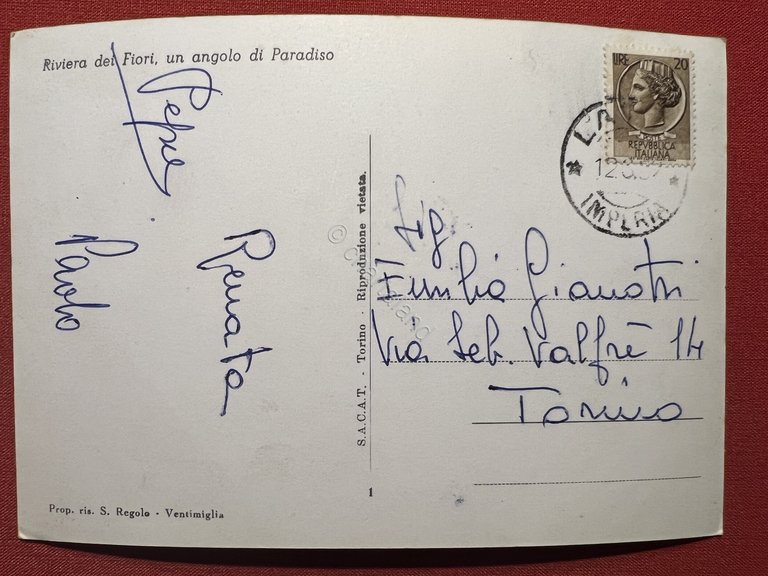 Riviera dei Fiori, un angolo di Paradiso
LIRE 20
POSTE
REPVBBLICA
ITALIANA
IMPERIA
Pepe
Renata
Paolo
Sig
Emilia Gianotti
Via Seb. Valfrè 14
Torino
S.A.C.A.T. - Torino - Riproduzione vietata.
1
Prop. ris. S. Regolo - Ventimiglia